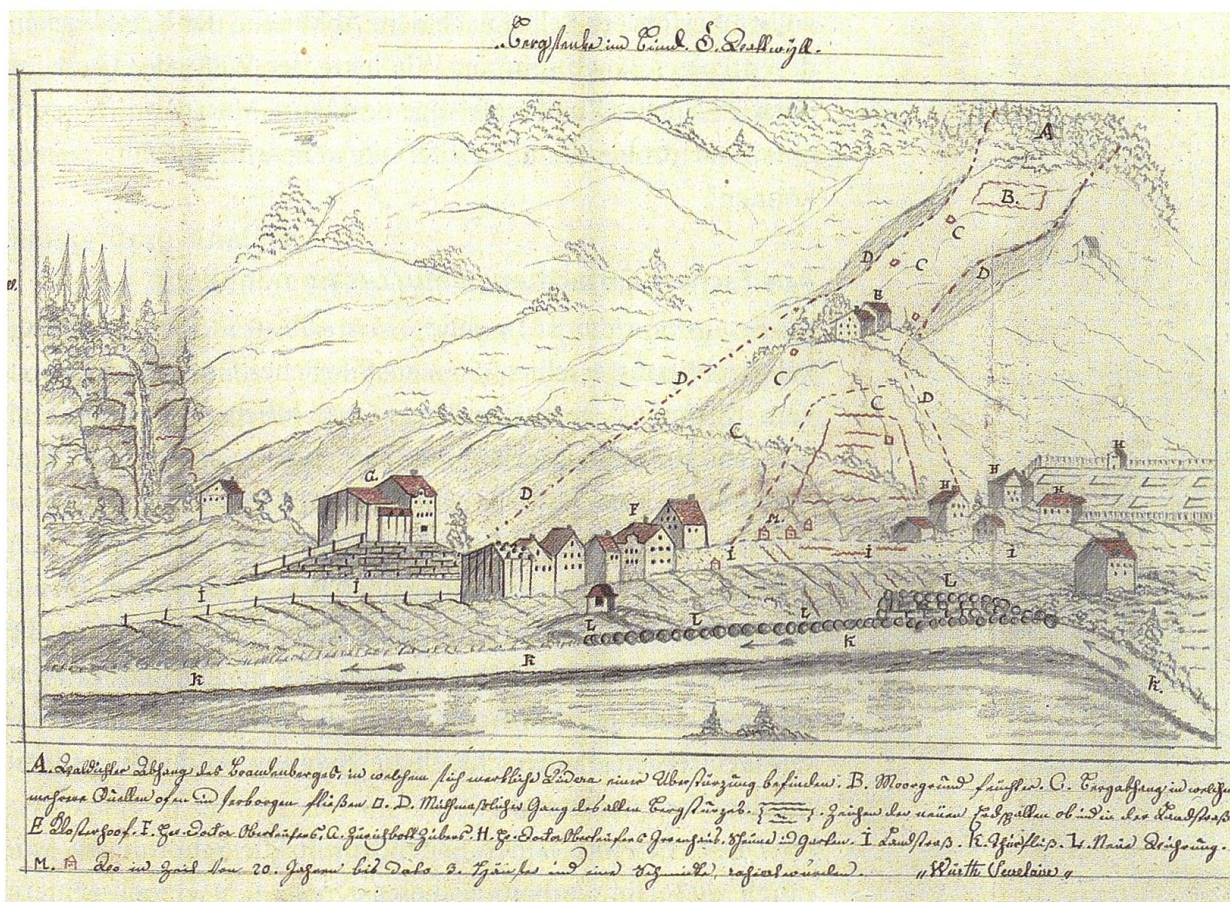 „Bergsenke im Bund. S. Lochwyll.
A
B.
C
D
C
D
E
D
C
D
C
C
D
H
G.
H
H
H
F
M.
I
I
I
I
I
L
L
L
L
K
K
K
K.
A. Waldichter Abhang des Brandenberges, in welchem sich merkliche einer Überstürzung befinden. B. Moorgrund feuchter. C. Bergabhang in welchem
mehrere Quellen offen und verborgen fließen □. D. Muthmaßlicher Gang des alten Bergsturzes. Zeichen der neuen Erdspalten ob und in der Landstraß
E Klosterhoof. F. Hr. Doktor Oberteufers G. Zürichbott Zubers H. Hr. Doktor Oberteufers Irrenhaus, Scheune und Garten. I Landstraß. K. Thurfluß. L. Neue Wuhrung.
M. Wo in Zeit von 20. Jahren bis Dato 3. Häuser und eine Schmitte, rasiert wurden. „Würth Secretaire„